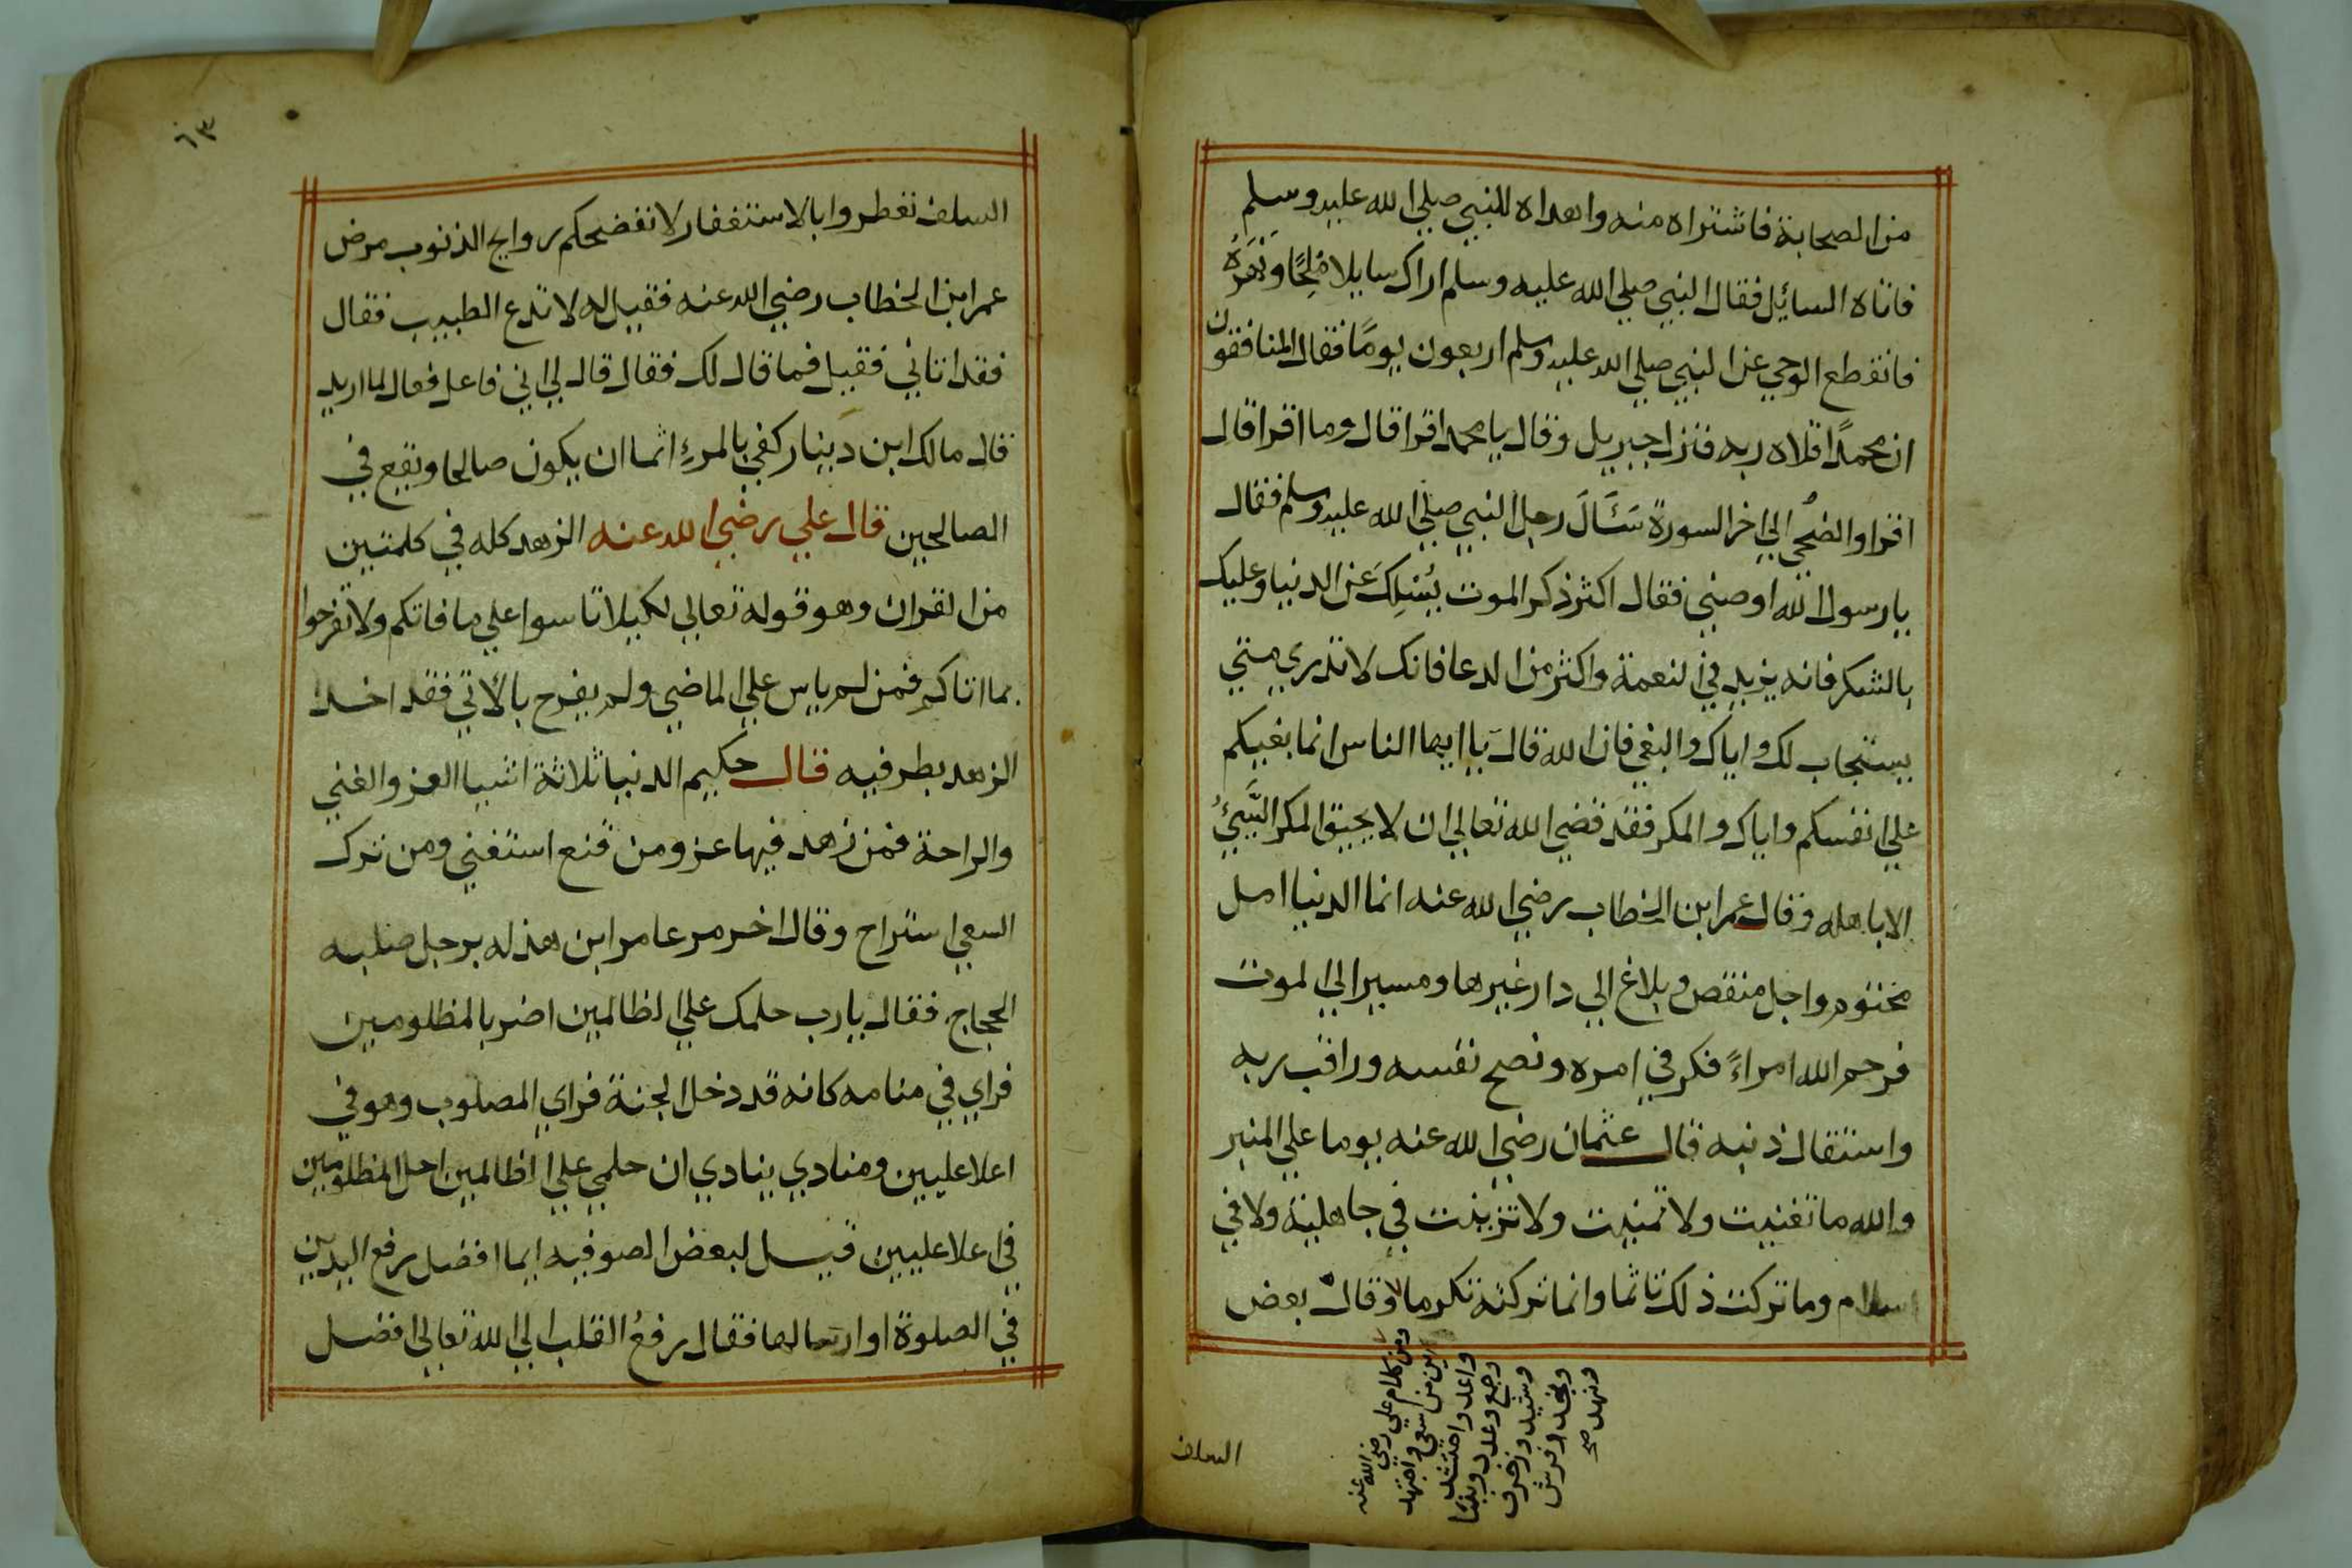 من الصحابة فاشتراه منه واهداه للنبي صلي الله عليه وسلم
فاتاه السائيل فقال النبي صلي الله عليه وسلم اراك سايلا مُلِحًا ونَهَرَهُ
فانقطع الوحي عن النبي صلي الله عليه وسلم اربعون يومًا فقال المنافقون
ان محمدًا قلاه ربه فنزل جبريل وقال يا محمد اقرا قال وما اقرا قال
اقرا والضحي الي اخر السورة سَئَالَ رجل النبي صلي الله عليه وسلم فقال
يا رسول الله اوصني فقال اكثر ذكر الموت يُسْلِكَ عن الدنيا وعليك
بالشكر فانه يزيد في النعمة واكثر من الدعا فانك لا تدري متي
يستجاب لك واياك والبغي فان الله قال يَا ايها الناس انما بغيكم
علي انفسكم واياك والمكر فقد قضي الله تعالي ان لا يحيق المكر السَّيِّئُ
الا باهله وقال عمر ابن الخطاب رضي الله عنه انما الدنيا امل
مختوم واجل منتقص وبلاغ الي دار غيرها ومسيرا الي الموت
فرحم الله امراءً فكر في امره ونصح نفسه وراقب ربه
واستقال ذنبه قال عثمان رضي الله عنه يوما علي المنبر
والله ما تغنيت ولا تمنيت ولا تزينت في جاهلية ولا في
اسلام وما تركت ذلك تاثما وانما تركته تكرما وقال بعض
ومن كلام علي رضي الله عنه
اين من سعي واجتهد
واعد واحتشد
وجمع وعدد وبنا
وشيد وزخرف
ونجد وفرش
ومهد صح
السلف
٦٣
السلف تعطروا بالاستغفار لا تفضحكم روايح الذنوب مرض
عمر ابن الخطاب رضي الله عنه فقيل له لا تدع الطبيب فقال
فقد اتاني فقيل فما قال لك فقال قال لي اني فاعل فعال لما اريد
قال مالك ابن دينار كفي بالمرءِ اثما ان يكون صالحا ويقع في
الصالحين قال علي رضي الله عنه الزهد كله في كلمتين
من القران وهو قوله تعالي لكيلا تاسوا علي ما فاتكم ولا تفرحوا
بما اتاكم فمن لم ياس علي الماضي ولم يفرح بالآتي فقد اخذ
الزهد بطرفيه قال حكيم الدنيا ثلاثة اشيا العز والغني
والراحة فمن زهد فيها عز ومن قنع استغني ومن ترك
السعي استراح وقال اخر مر عامر ابن هذله برجل صلبه
الحجاج فقال يا رب حلمك علي الظالمين اضر بالمظلومين
فراي في منامه كانه قد دخل الجنة فراي المصلوب وهو في
اعلا عليين ومنادي ينادي ان حلمي علي الظالمين احل المظلومين
في اعلا عليين قيل لبعض الصوفيه ايما افضل رفع اليدين
في الصلوة او ارسالهما فقال رفعُ القلب الي الله تعالي افضل